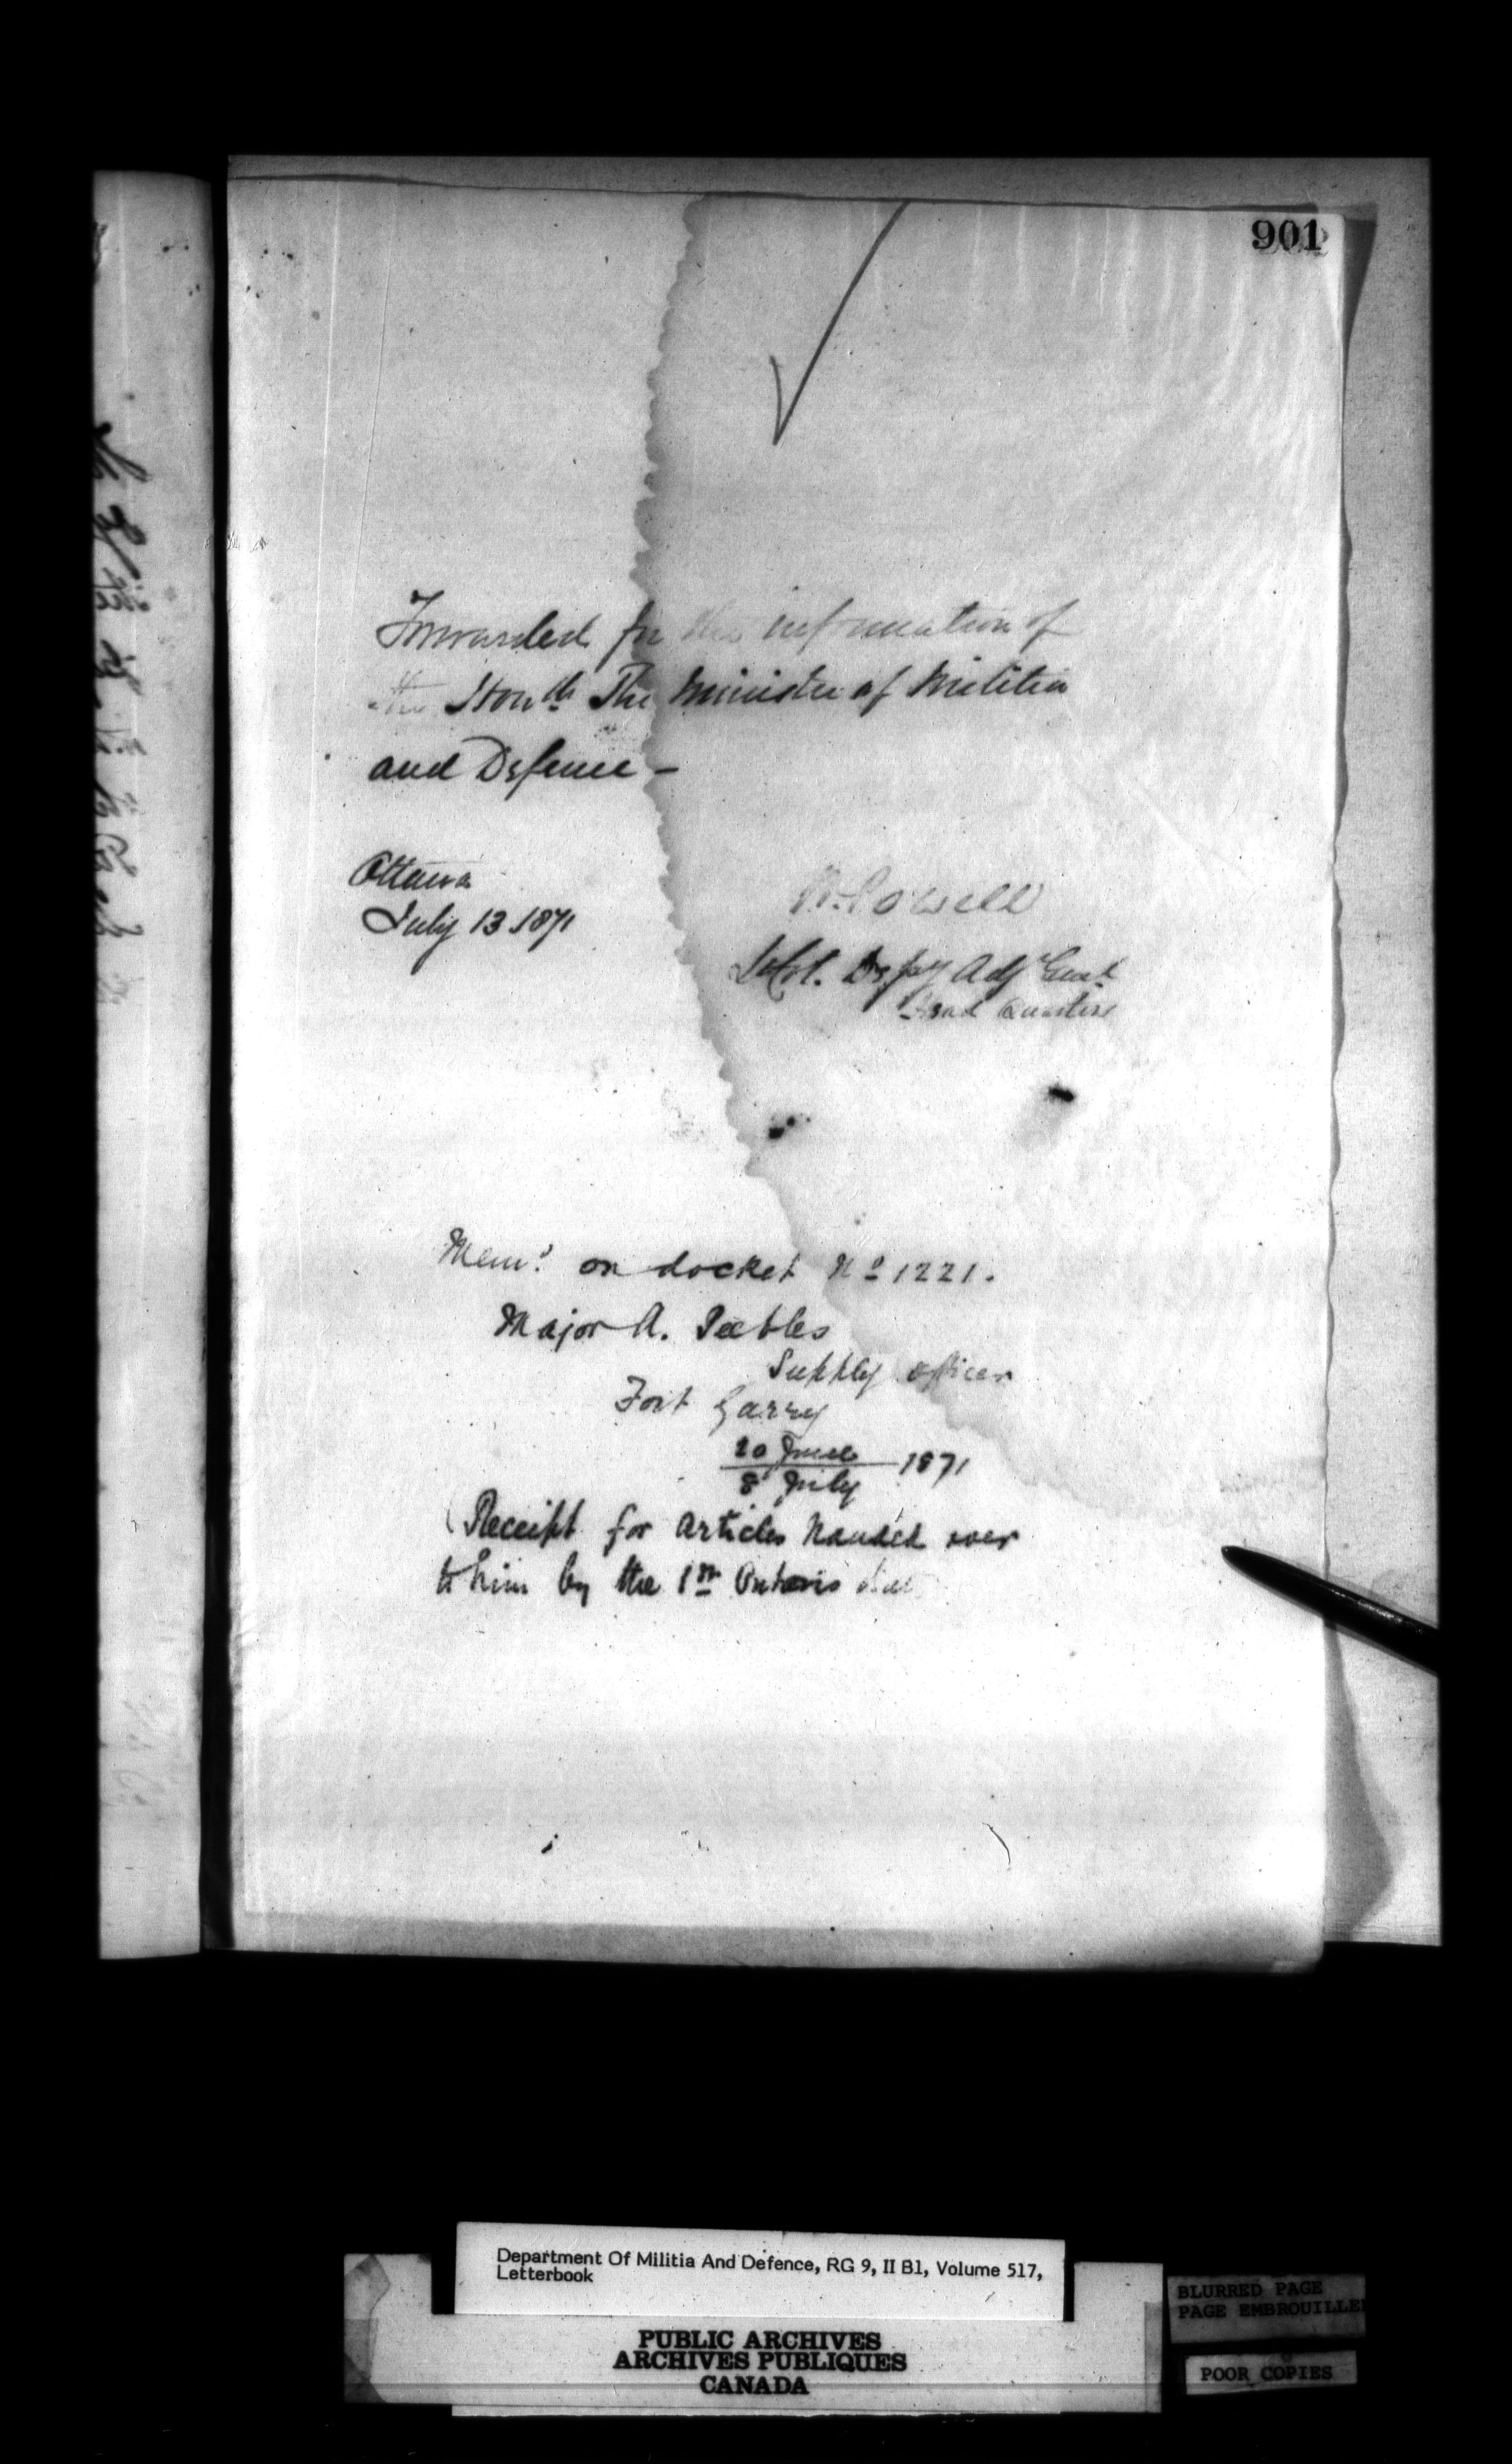 901
Forwarded for the information of
the Honble The Minister of Militia
and Defence —
Ottawa
July 13 1871
W. Powell
Lt Col. Depy Adjt Genl
Head Quarters
Memo on docket No 1221.
Major A. Peebles
Supply officer
Fort Garry
20 June
8 July 1871
(Receipt for articles handed over
to him by the 1st Ontario
Department Of Militia And Defence, RG 9, II B1, Volume 517,
Letterbook
PUBLIC ARCHIVES
ARCHIVES PUBLIQUES
CANADA
BLURRED PAGE
PAGE EMBROUILLE
POOR COPIES